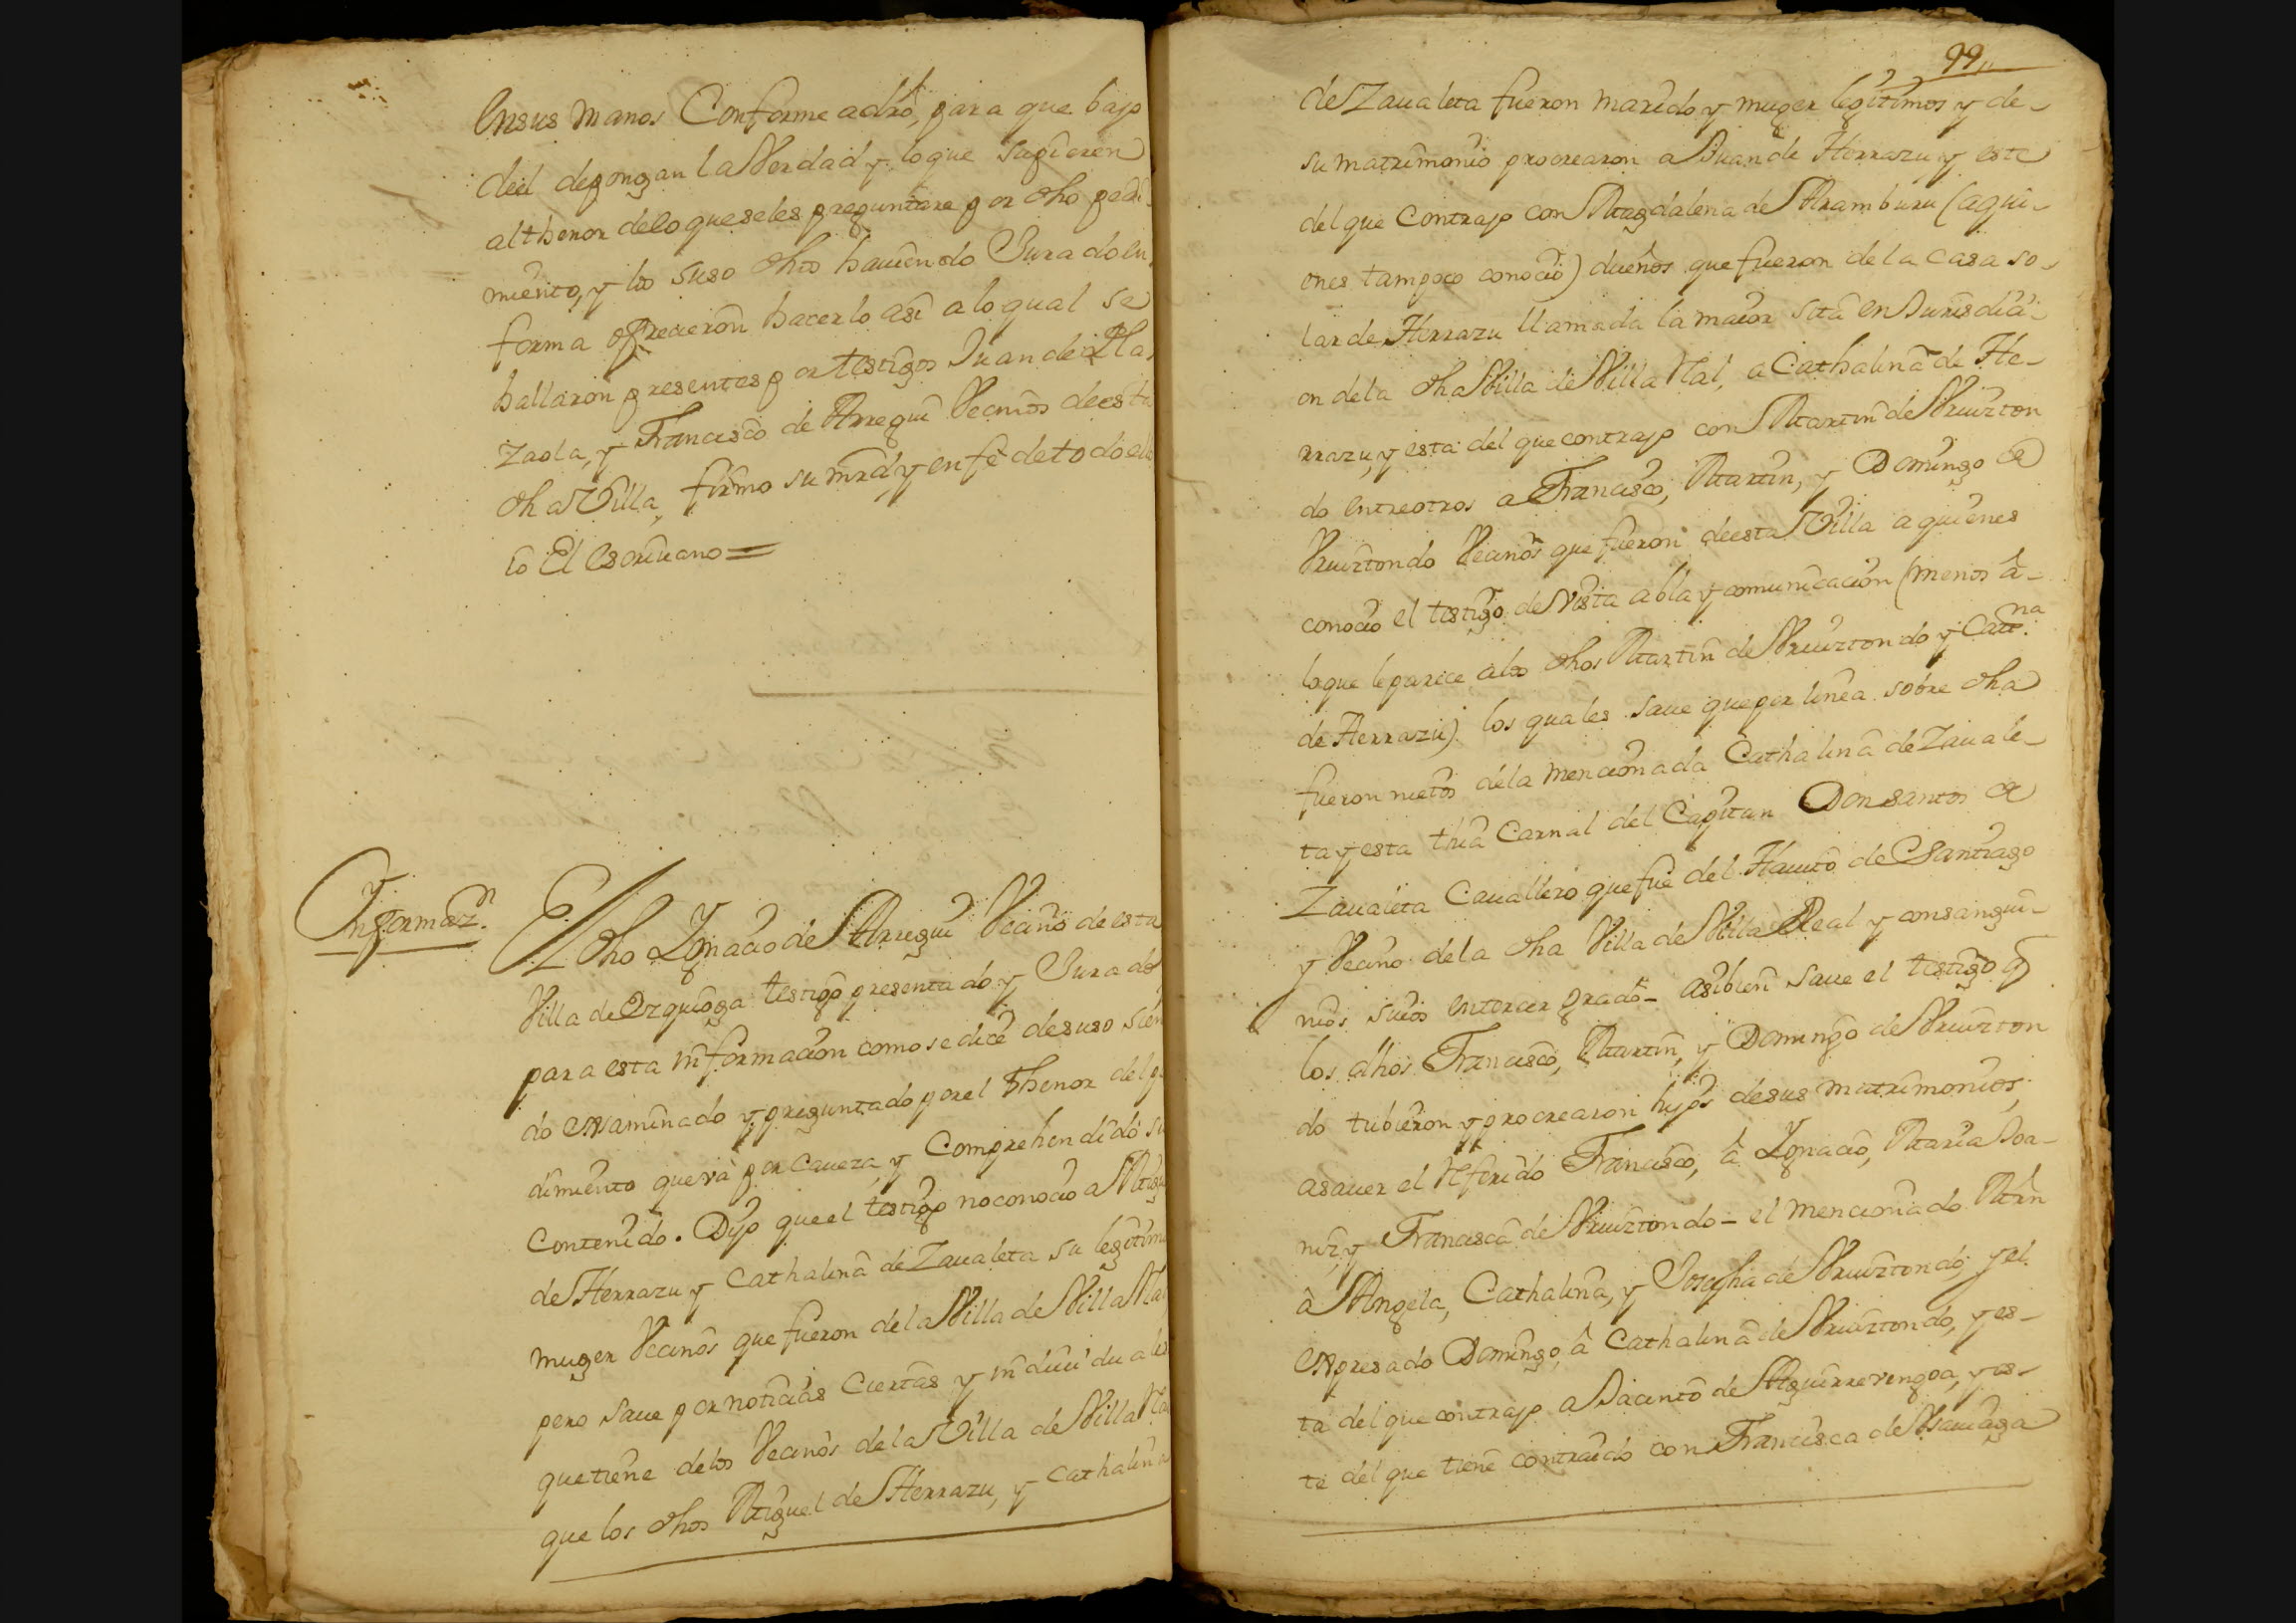 Ensus manos Conforme adró, para que bajo
deel depongan la Verdad y loque supieren
althenor deloqueseles preguntare por dho pedi-
miento, y los suso dhos hauiendo Juradoen
forma ofrecieron hacerlo asi alo qual se
hallaron presentes por testigos Juan de Pla
zaola, y Francisco de Arregui Vecinos de esta
dha Villa, firmo su mrd y en fe detodo ello
io El Escriuano =
Ynformazn. El dho Ygnacio de Arregui Vecino de esta
Villa de Ezquioga testigo presentado y Jurado
para esta informacion como se dice desuso sien
do examinado y preguntado por el thenor del pe
dimiento que và por Caueza, y Comprehendido su
Contenido. Dijo que el testigo no conocio a Migu
de Herrazu y Cathalina de Zaualeta su legitima
muger Vecinos que fueron dela Villa de Villa Rl
pero saue por noticias Ciertas y indiuiduales
quetiene delos Vecinos dela Villa de Villa Rl
que los dhos Miguel de Herrazu, y Cathalina
99,,
de Zaualeta fueron marido y muger legitimos y de-
su matrimonio procrearon a Juan de Herrazu y este
del que Contrajo con Magdalena de Aramburu (aqui-
enes tampoco conocio) dueños que fueron dela Casa so-
lar de Herrazu llamada la maior sita en Jurisdici-
on dela dha Villa de Villa Ral, a Cathalina de He-
rrazu, y esta del que contrajo con Martin de Vruizton
do entreotros a Francisco, Martin, y Domingo de
Vruiztondo Vecinos que fueron deesta Villa a quienes
conocio el testigo de Vista abla y comunicacion (menos â-
loque leparece alos dhos Martin de Vruiztondo y Catna.
de Herrazu) los quales saue quepor linea sobre dha
fueron nietos dela mencionada Cathalina de Zauale-
ta y esta thia Carnal del Capitan Don Santos de
Zaualeta Cauallero que fue del Hauito de Santiago
y Vecino dela dha Villa de Villa Real y consangui-
nios suios entercer grado- asibien saue el testigo q
los dhos Francisco, Martin, y Domingo de Vruizton
do tubieron y procrearon hijos desus matrimonios,
asauer el referido Francisco, â Ygnacio, Maria Joa-
niz, y Francisca de Vruiztondo - el mencionado Mrn
â Angela, Cathalina, y Josepha de Vruiztondo, y el
expresado Domingo, â Cathalina de Vruiztondo, y es-
ta del que contrajo a Jacinto de Aguirrevengoa, y es-
te del que tiene contraido con Francisca de Vsauiaga